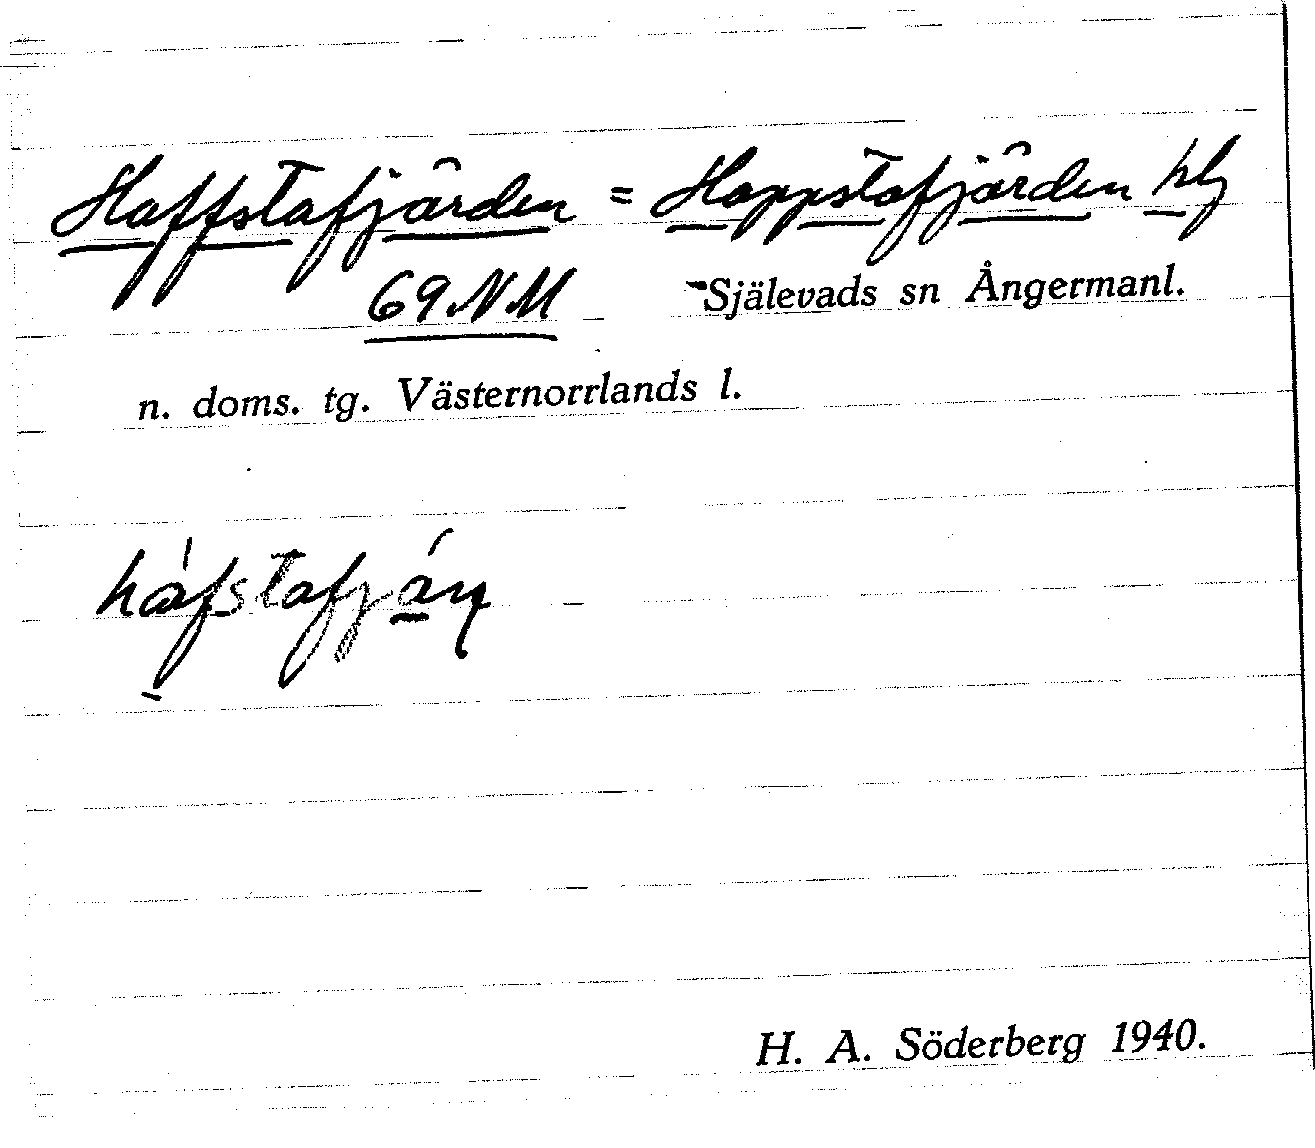 Haffstafjärden = Happstafjärden
69.NM Själevads sn Ångermanl.
n. doms. tg. Västernorrlands l.
H. A. Söderberg 1940.